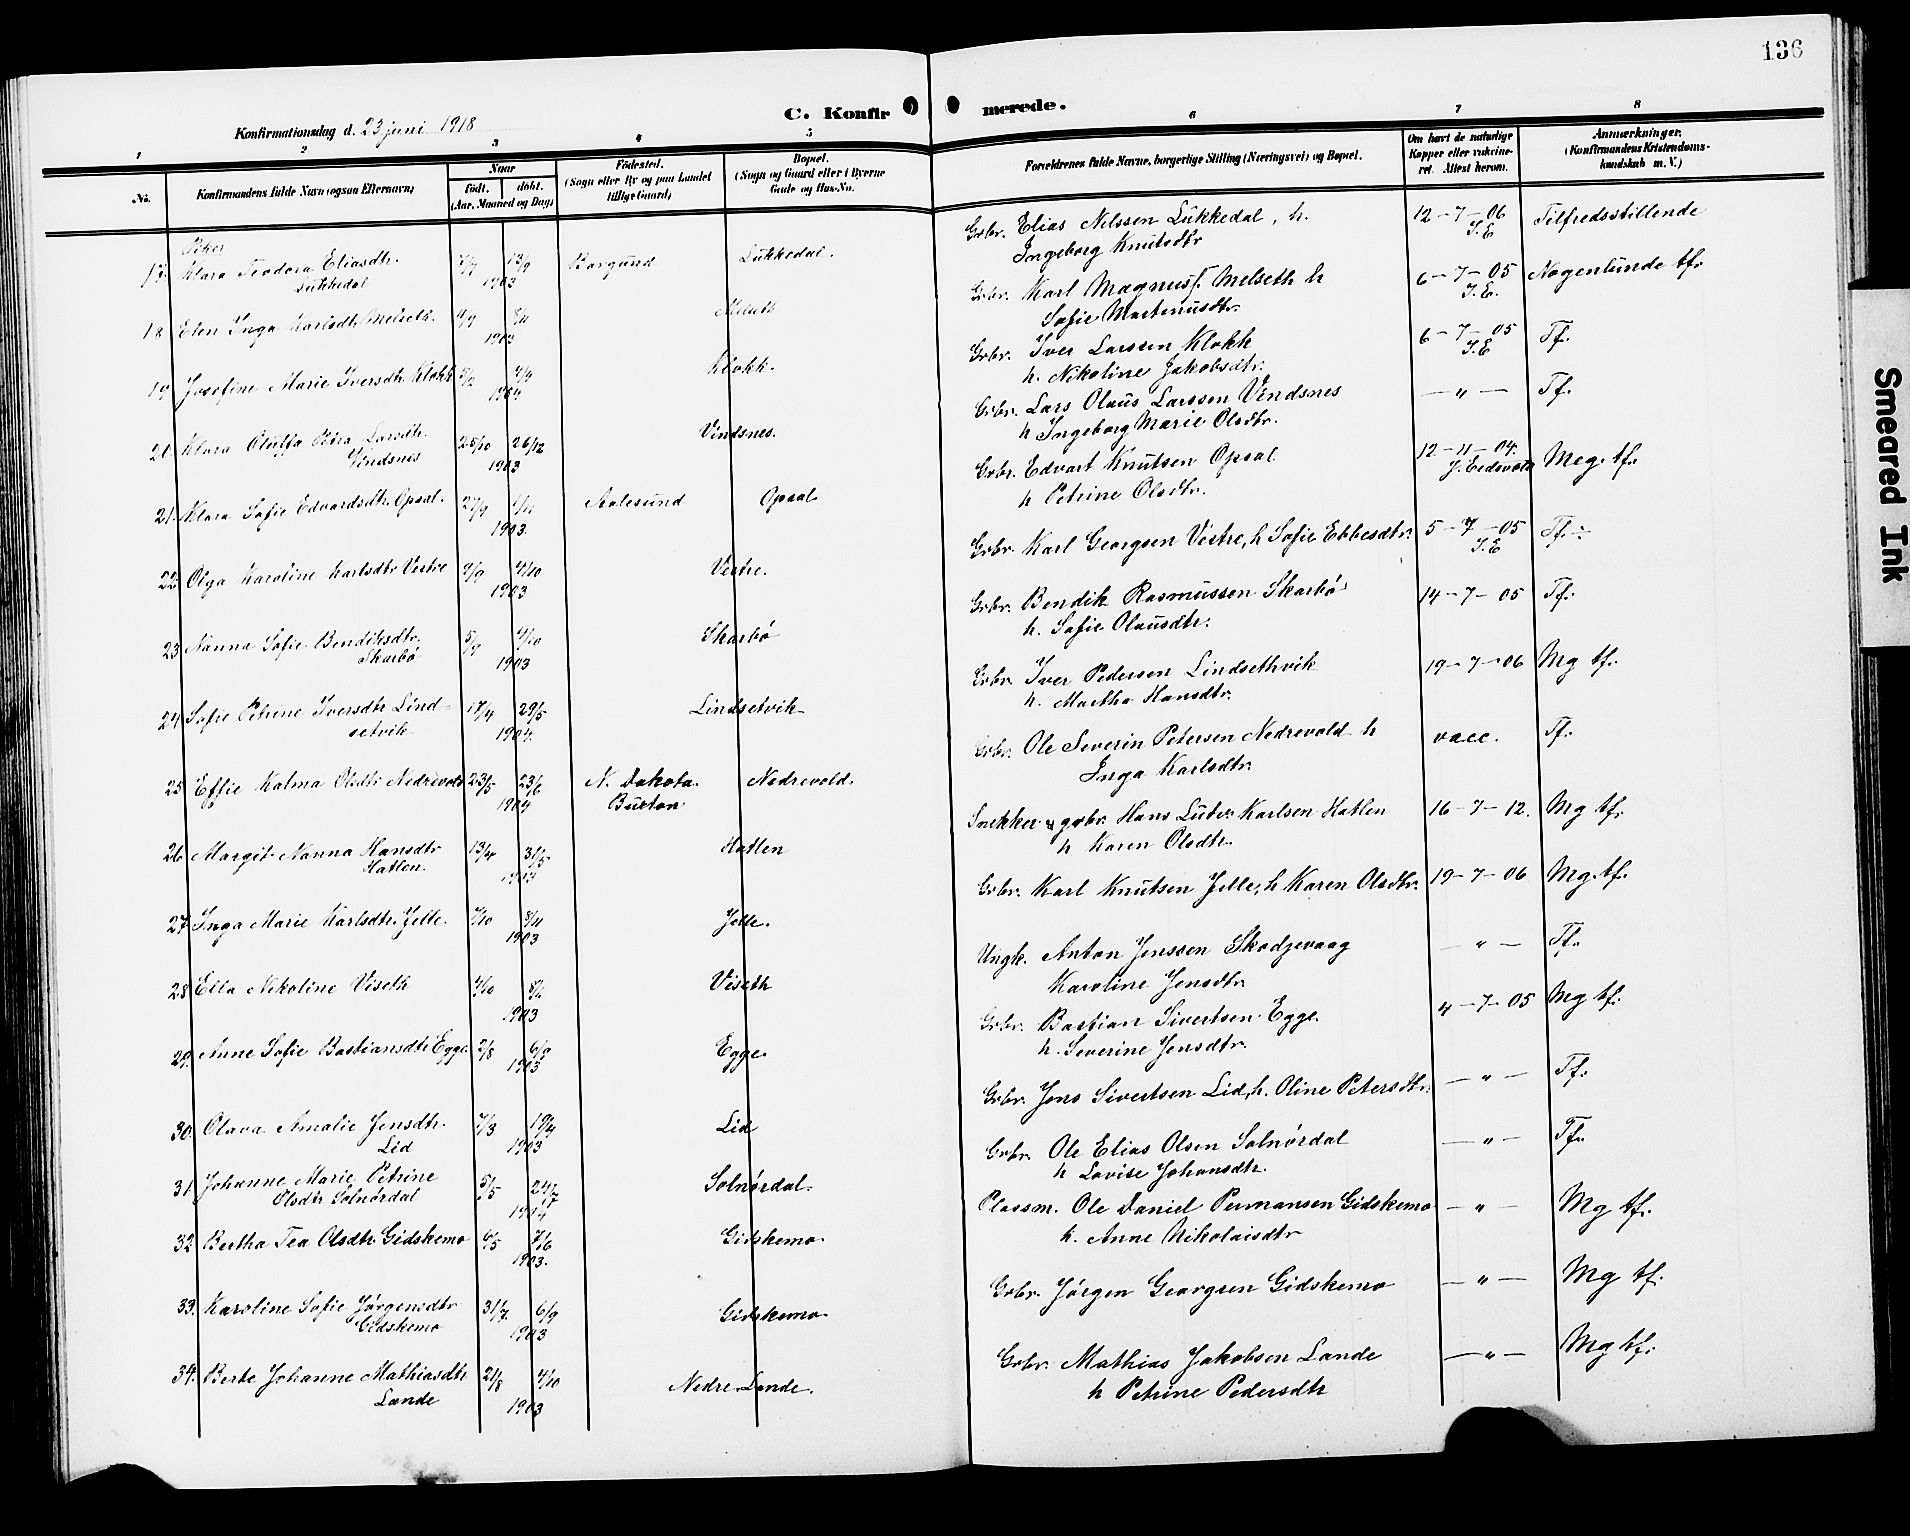 136
C. Konfirmerede.
Konfirmationsdag d. 23 juni 1918
1 2 3 4 5 6 7 8
No.
Konfirmandens fulde Navn (ogsaa Efternavn)
Naar
født. døbt.
(Aar, Maaned og Dag)
Fødested.
(Sogn eller By og paa Landet
tillige Gaard)
Bopæl.
(Sogn og Gaard eller i Byerne
Gade og Hus-No.
Forældrenes fulde Navne, borgerlige Stilling (Næringsvei) og Bopæl.
Om havt de naturlige
Kopper eller vakcine-
ret. Attest herom.
Anmærkninger.
(Konfirmandens Kristendoms-
kundskab m. V.)
Piker
17. Klara Teodora Eliasdtr. 13/9 Borgund Lukkedal. Grbr. Elias Nilssen Lukkedal, h. 12-7-06 Tilfredsstillende
Lukkedal 1903 Ingeborg Knutsdtr J.E
18. Elen Inga Karlsdtr Melseth. Melseth Grbr. Karl Magnus Melseth h 6-7-05 Nogenlunde tf.
1903 Sofie Martinusdtr. J.E.
19 Josefine Marie Iversdtr Klokk Klokk. Grbr. Iver Larssen Klokk 6-7-05 Tf.
1904 h. Nikoline Jakobsdtr. J.E
20. Klara Petra Larsdtr. 25/10 26/12 Vindsnes. Grbr. Lars Olaus Larssen Vindsnes -"- Tf.
Vindsnes 1903 h Ingeborg Marie Olsdtr.
21. Klara Sofie Edvardsdtr. Opsal. 27/9 1/11 Aalesund Opsal Grbr. Edvart Knutsen Opsal 12-11-04. Meg. tf.
1903. h Petrine Olsdtr.
22 Olga Karoline Karlsdtr Vestre 9/9 4/10 Vestre. Grbr. Karl Georgsen Vestre, h Sofie Ebbesdtr. 5-7-05 Tf.
1903 J.E
23 Nanna Sofie Bendiksdtr. 4/10 Skarbø Grbr. Bendik Rasmussen Skarbø 14-7-05 Tf.
Skarbø 1903 h. Sofie Olausdtr.
24 Sofie Petrine Iversdtr Lind- 17/4 29/5 Lindsetvik Grbr. Iver Pedersen Lindsethvik 19-7-06 Mg tf.
setvik 1904. h. Martha Hansdtr.
25 Effie Kalma Olsdtr Nedrevold 23/5 23/6 N. Dakota. Nedrevold. Grbr. Ole Severin Petersen Nedrevold h vacc. Tf.
1904 Buxton Inga Karlsdtr.
26 Margit Nanna Hansdtr 13/4 31/5 Hatlen Snekker & grbr. Hans Karlsen Hatlen 16-7-12. Mg tf.
Hatlen. 1903 h Karen Olsdtr.
27 Inga Marie Karlsdtr. Jelle. 7/10 8/11 Jelle. Grbr. Karl Knutsen Jelle, h Karen Olsdtr. 19-7-06 Mg. tf.
1903
28 Ella Nikoline Viseth 4/10 Viseth Ungk. Anton Jenssen Skodjevaag -"- Tf.
1903 Karoline Jensdtr.
29. Anne Sofie Bastiansdtr Egge 2/8 6/9 Egge Grbr. Bastian Sivertsen Egge. 4-7-05 Mg tf.
1903 h. Severine Jensdtr.
30. Olava Amalie Jensdtr. 7/3 19/4 Lid Grbr. Jens Sivertsen Lid, h. Oline Petersdtr. -"- Tf.
Lid 1903
31. Johanne Marie Petrine 5/5 24/7 Solnørdal. Grbr. Ole Elias Olsen Solnørdal -"- Tf.
Olsdtr Solnørdal 1904 h Lovise Johansdtr.
32 Bertha Tea Olsdtr Gidskemo 6/5 7/6 Gidskemo. Plassm. Ole Daniel Permansen Gidskemo -"- Mg tf.
1903. h. Anne Nikolaisdtr
33. Karoline Sofie Jørgensdtr 31/7. 6/9 Gidskemo. Grbr. Jørgen Georgsen Gidskemo -"- Mg tf.
Gidskemo 1903
34. Berte Johanne Mathiasdtr 21/8 4/10 Nedre Lande. Grbr. Mathias Jakobsen Lande -"- Mg tf.
Lande 1903 h Petrine Pedersdtr
Smeared Ink